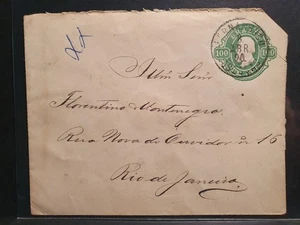 100
Illm Snr
Florentino Montenegro
Rua Nova do Ouvidor nr 15
Rio de Janeiro.